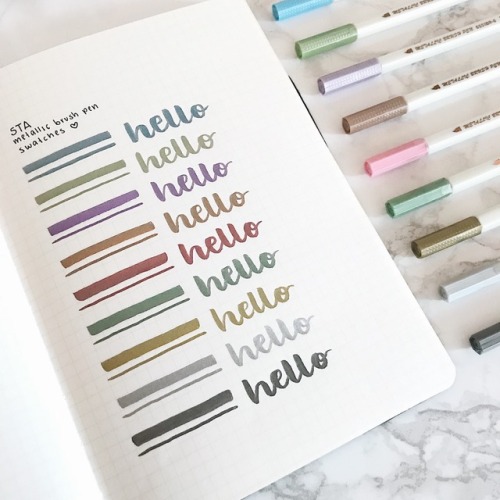 STA
metallic brush pen
swatches ♡
hello
hello
hello
hello
hello
hello
hello
hello
hello